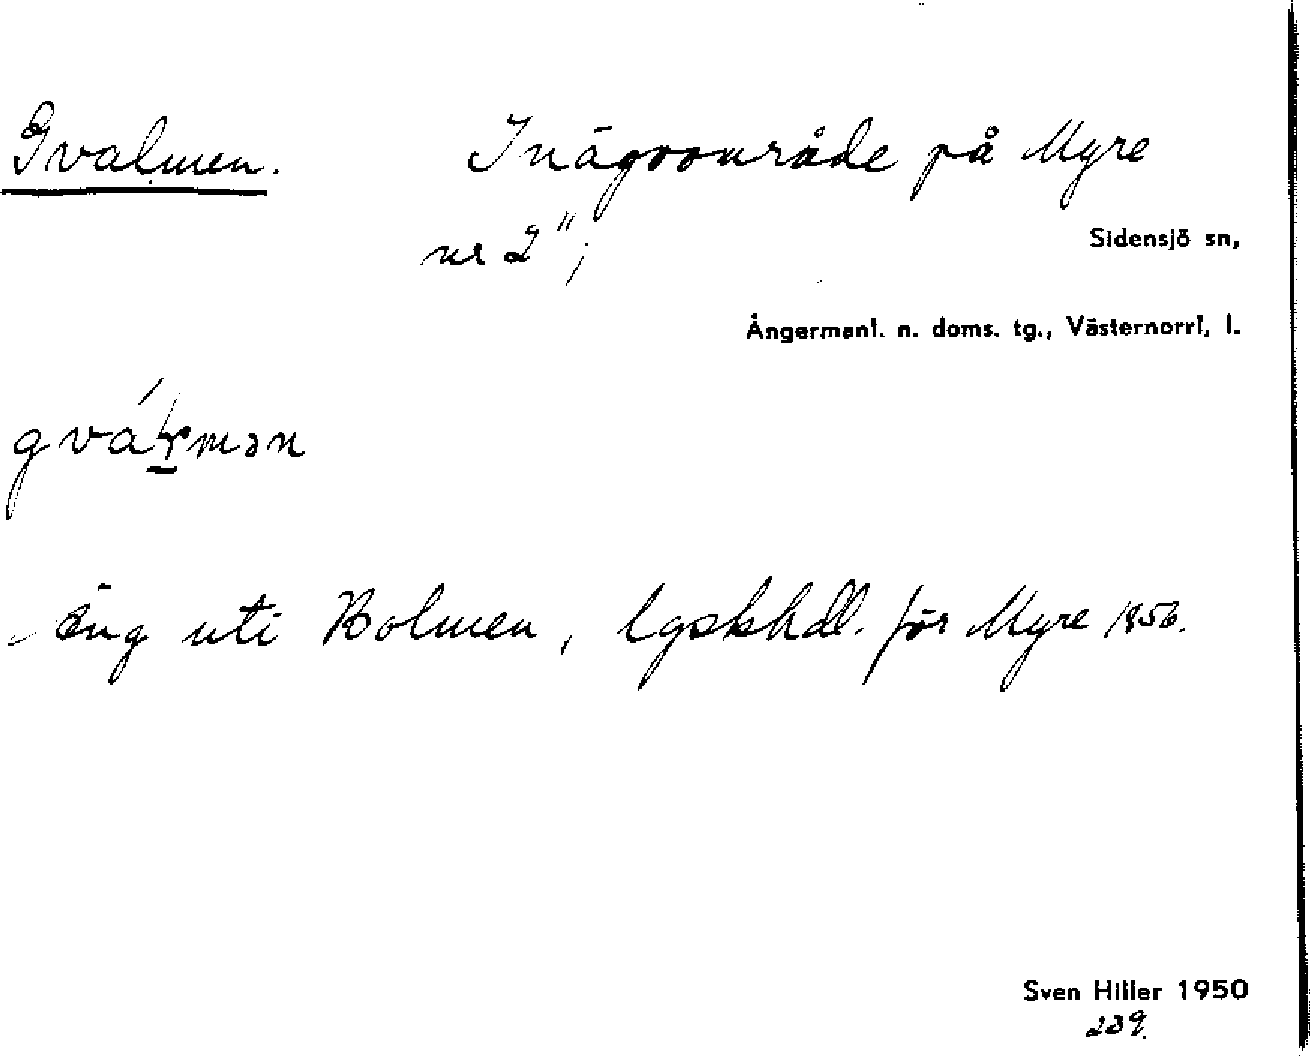 Gvalmen. Inägoområde på Myre
nr 2";
Sidensjö sn,
Ångermanl. n. doms. tg., Västernorrl. l.
Äng uti Holmen, lgskhdl. för Myre 1856.
Sven Hiller 1950
239.